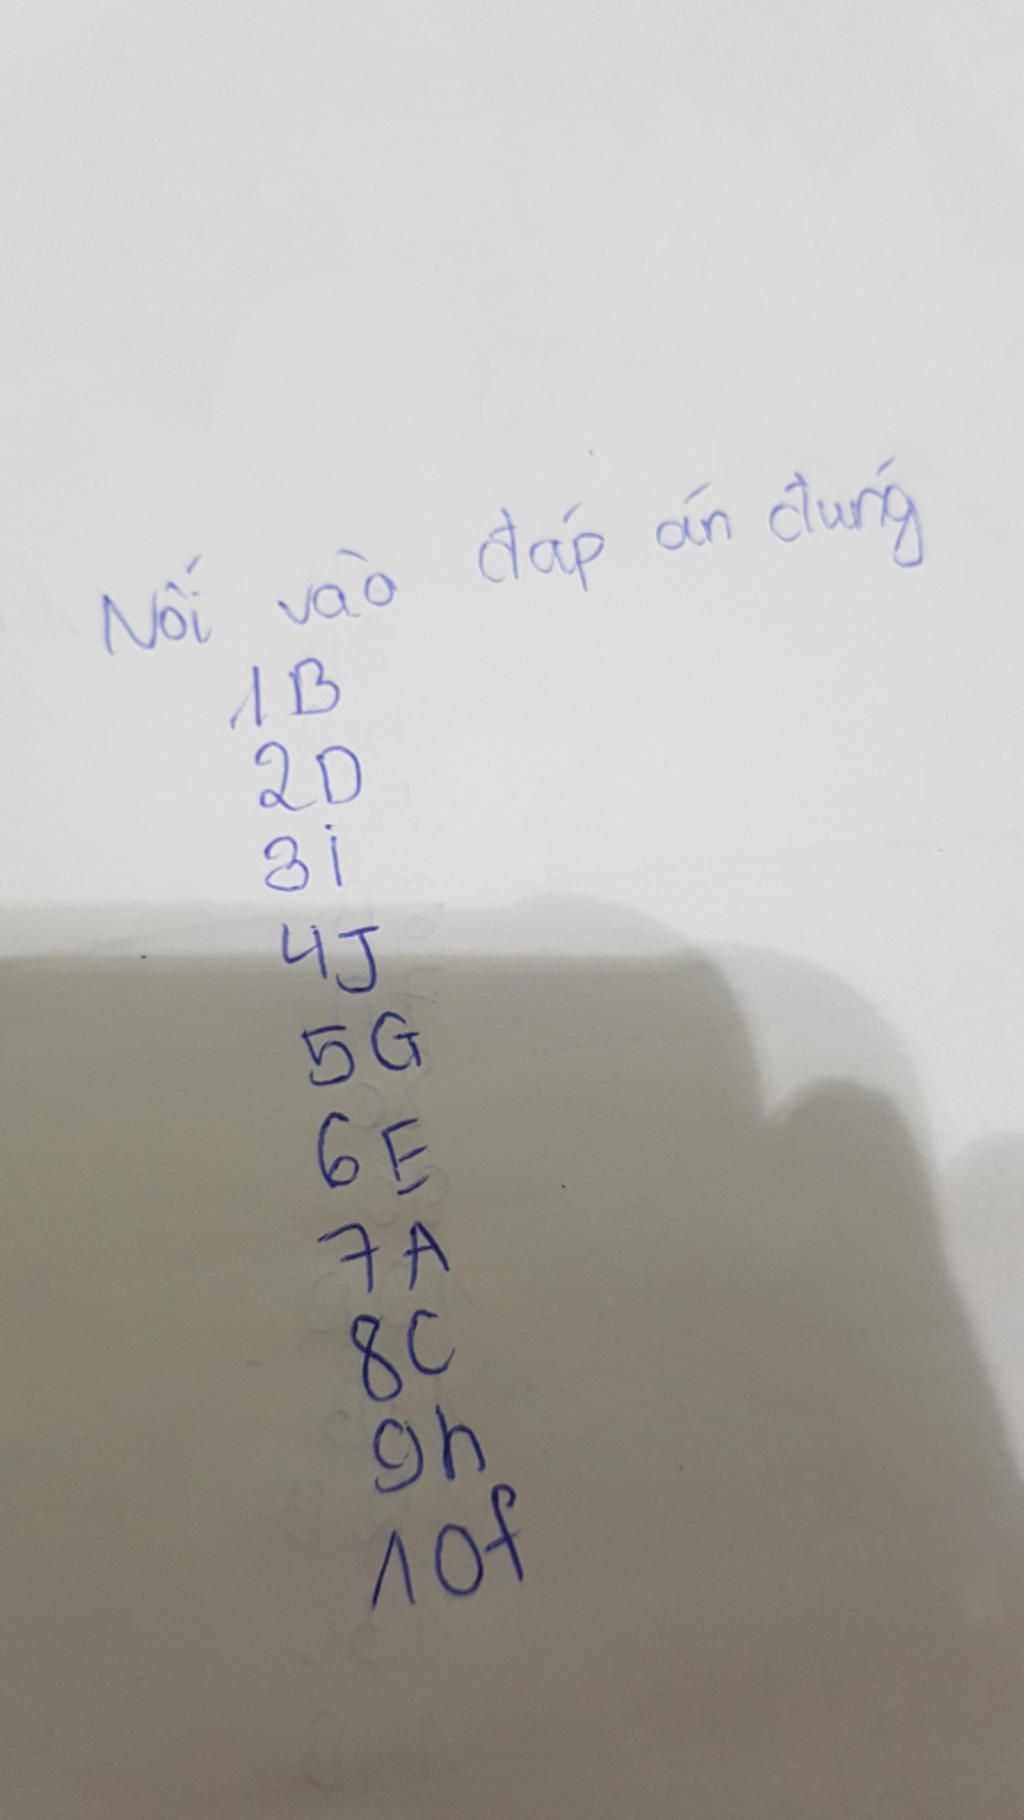 Nối vào đáp án đúng
1B
2D
3i
4J
5G
6E
7A
8C
9h
10f